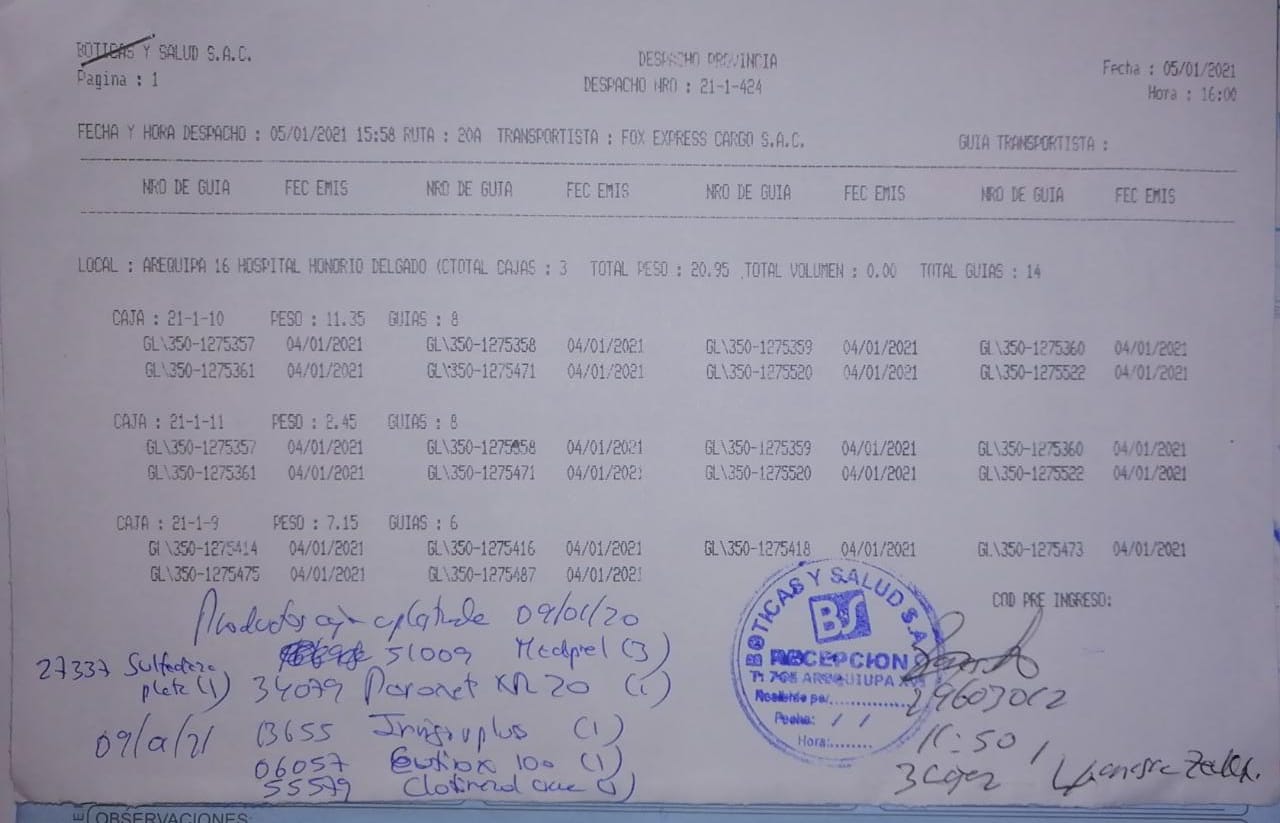 BOTICAS Y SALUD S.A.C.
Pagina : 1
DESPACHO PROVINCIA
DESPACHO NRO : 21-1-424
Fecha : 05/01/2021
Hora : 16:00
FECHA Y HORA DESPACHO : 05/01/2021 15:58 RUTA : 20A TRANSPORTISTA : FOX EXPRESS CARGO S.A.C. GUIA TRANSPORTISTA :
NRO DE GUIA FEC EMIS NRO DE GUIA FEC EMIS NRO DE GUIA FEC EMIS NRO DE GUIA FEC EMIS
LOCAL : AREQUIPA 16 HOSPITAL HONORIO DELGADO (CTOTAL CAJAS : 3 TOTAL PESO : 20.95 TOTAL VOLUMEN : 0.00 TOTAL GUIAS : 14
CAJA : 21-1-10 PESO : 11.35 GUIAS : 8
GL\350-1275357 04/01/2021 GL\350-1275358 04/01/2021 GL\350-1275359 04/01/2021 GL\350-1275360 04/01/2021
GL\350-1275361 04/01/2021 GL\350-1275471 04/01/2021 GL\350-1275520 04/01/2021 GL\350-1275522 04/01/2021
CAJA : 21-1-11 PESO : 2.45 GUIAS : 8
GL\350-1275357 04/01/2021 GL\350-1275358 04/01/2021 GL\350-1275359 04/01/2021 GL\350-1275360 04/01/2021
GL\350-1275361 04/01/2021 GL\350-1275471 04/01/2021 GL\350-1275520 04/01/2021 GL\350-1275522 04/01/2021
CAJA : 21-1-9 PESO : 7.15 GUIAS : 6
GL\350-1275414 04/01/2021 GL\350-1275416 04/01/2021 GL\350-1275418 04/01/2021 GL\350-1275473 04/01/2021
GL\350-1275475 04/01/2021 GL\350-1275487 04/01/2021
COD PRE INGRESO:
Productos 09/01/20
51009 Medpiel (3)
27337 Sulfadiazina plata (1)
34079 Paronet XR 20 (1)
09/01/21
13655 (1)
06057 Eutirox 100 (1)
55579 (1)
BOTICAS Y SALUD S.A.
BS
RECEPCION
AREQUIPA XVI
Recibido por:
Fecha: / /
Hora:
29603012
11:50
3 cajas
OBSERVACIONES: